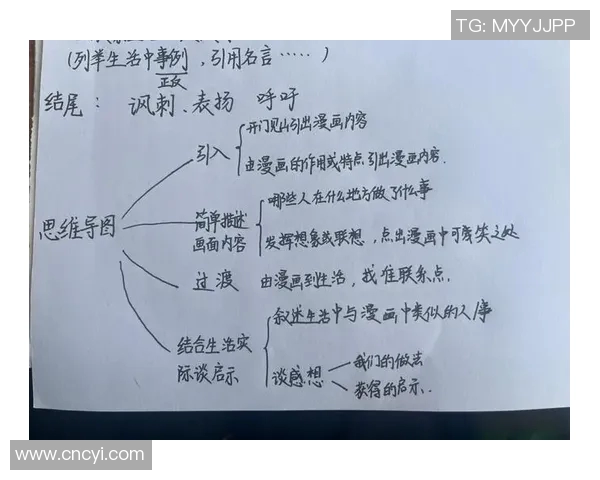 TG: MYYJJPP
(列举生活中事例，引用名言……)
正反
结尾： 讽刺、表扬 呼吁
思维导图
引入
开门见山引出漫画内容
由漫画的作用或特点引出漫画内容.
简单描述
画面内容
哪些人在什么地方做了什么事
发挥想象或联想，点出漫画中可笑之处
过渡 由漫画到生活，找准联系点.
结合生活实
际谈启示
叙述生活中与漫画中类似的人事
谈感想
我们的做法
获得的启示.
www.cncyi.com